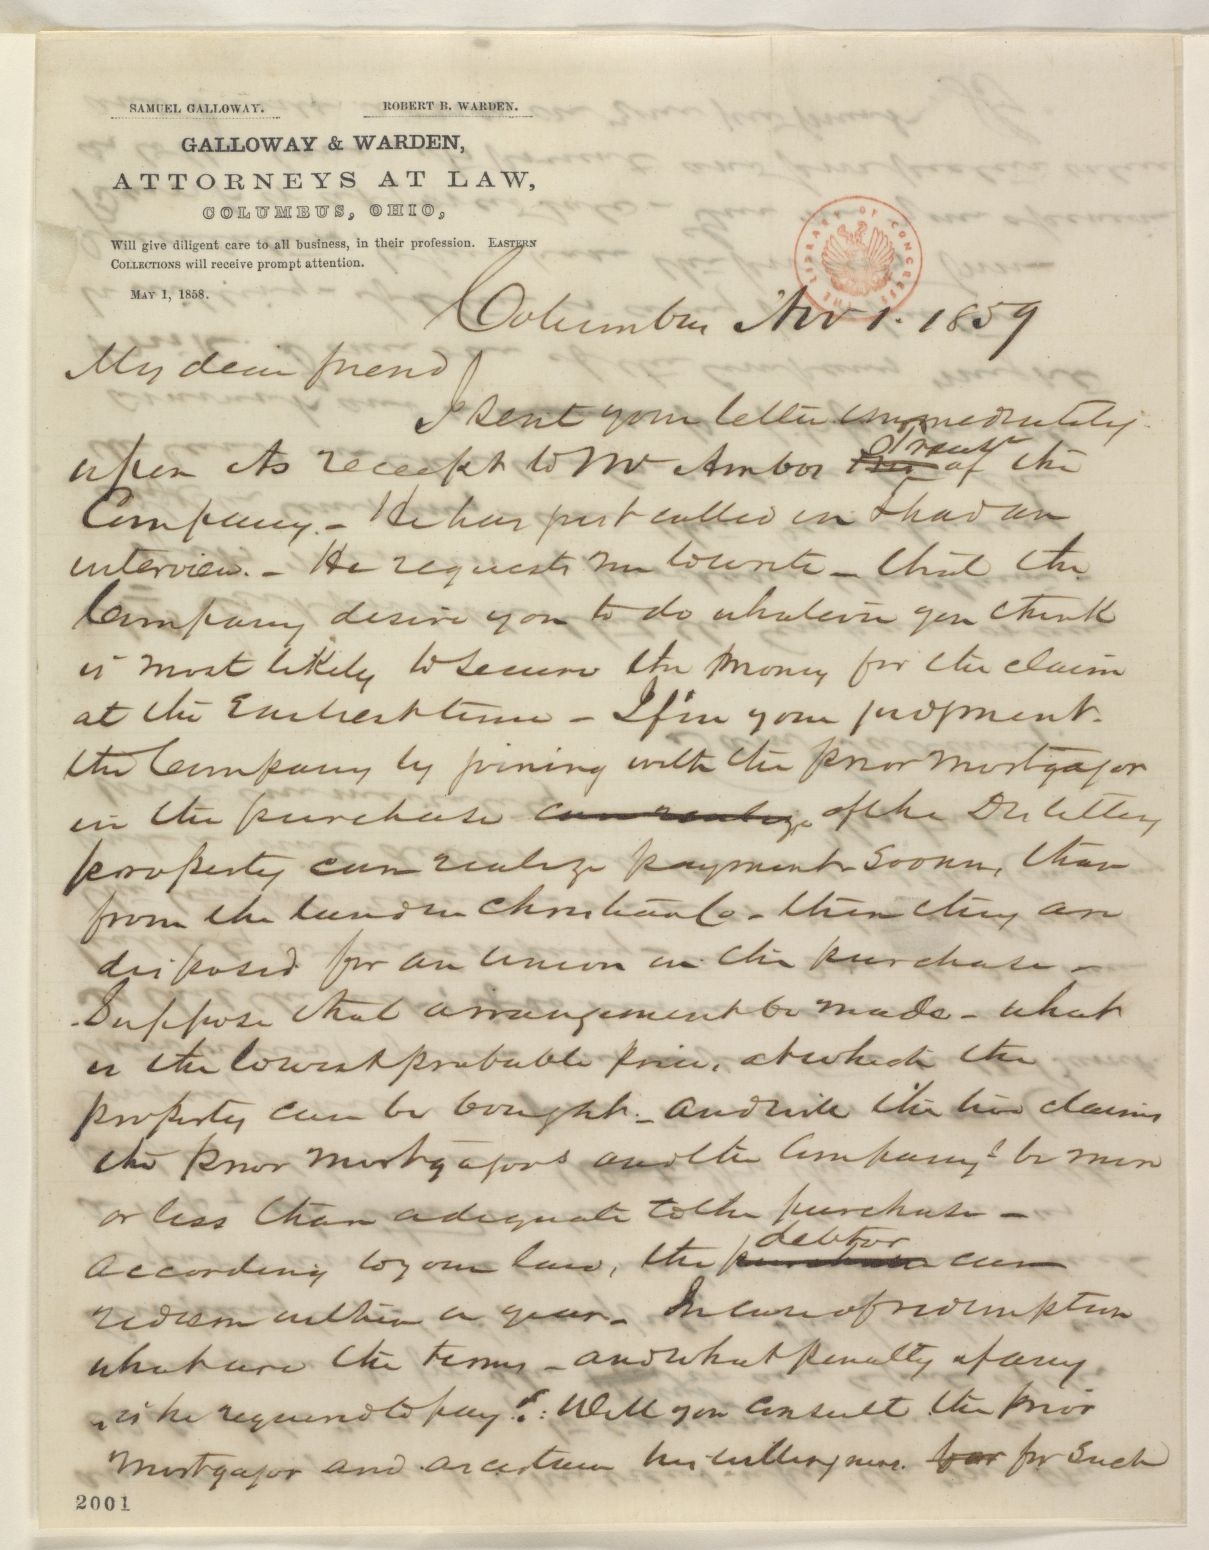 SAMUEL GALLOWAY. ROBERT B. WARDEN.
GALLOWAY & WARDEN,
ATTORNEYS AT LAW,
COLUMBUS, OHIO,
Will give diligent care to all business, in their profession. EASTERN
COLLECTIONS will receive prompt attention.
MAY 1, 1858.
THE LIBRARY OF CONGRESS
Columbus Nov 1. 1859
My dear friend
I sent your letter immediately
upon its receipt to Mr Ambos of the
Company. - He has just called in & had an
interview. - He requests me to write - that the
Company desire you to do whatever you think
is most likely to secure the money for the claim
at the Earliest time - If in your judgment.
the Company by joining with the prior mortgagor
in the purchase can realize of the Distillery
property can realize payment sooner, than
from the lands in Christian Co - then they are
disposed for an union in the purchase -
Suppose that arrangement be made - what
is the lowest probable price, at which the
property can be bought. - and will the two claims
the prior mortgagors and the Company's be more
or less than adequate to the purchase -
debtor
According to your law, the purchaser can
redeem within a year - In case of redemption
what are the terms - and what penalty if any
is he required to pay?: Will you consult the prior
mortgagor and ascertain his willingness for such
2001